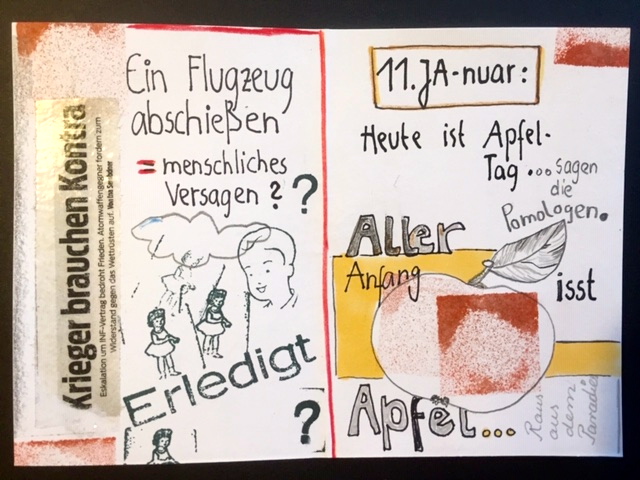 Krieger brauchen Kontra
Eskalation um INF-Vertrag bedroht Frieden. Atomwaffengegner fordern zum
Widerstand gegen das Wettrüsten auf.
Ein Flugzeug
abschießen
= menschliches
Versagen ? ?
Erledigt
?
11. JA-nuar:
Heute ist Apfel-
Tag... sagen
die
Pomologen.
Aller
Anfang
isst
Apfel...
Raus
aus
dem
Paradies